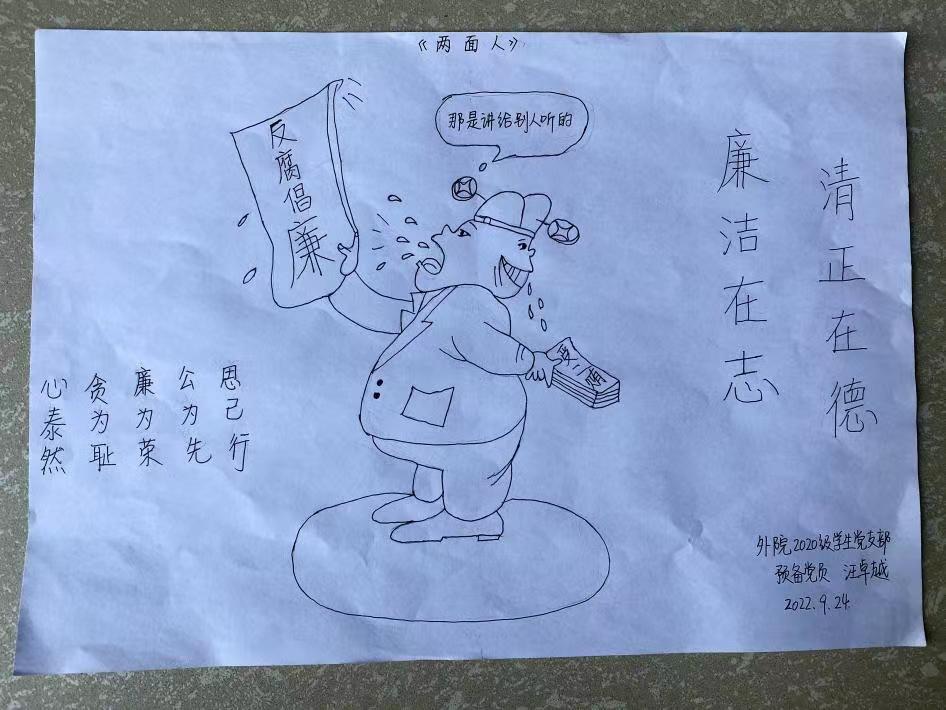 《两面人》
那是讲给别人听的
反腐倡廉
受贿
清正在德
廉洁在志
思己行
公为先
廉为荣
贪为耻
心泰然
外院2020级学生党支部
预备党员 汪卓越
2022.9.24.